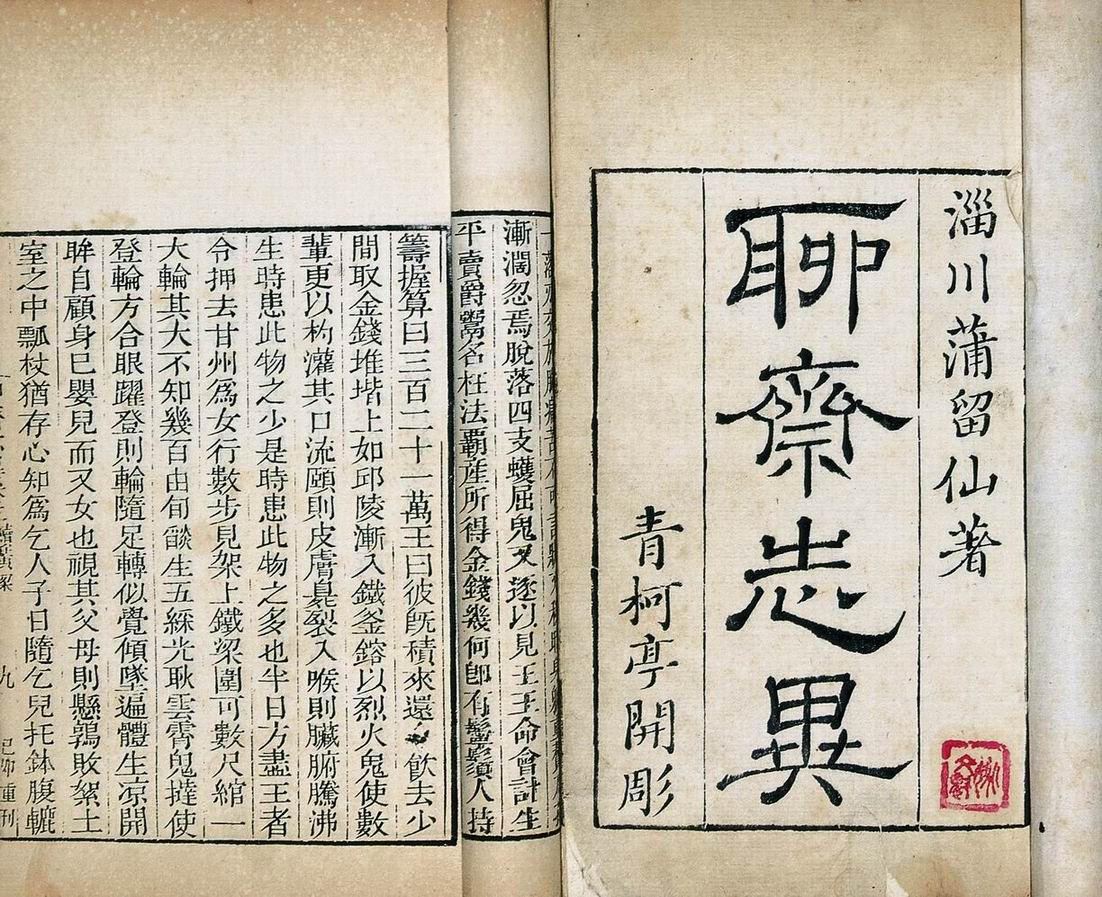 淄川蒲留仙著
聊齋志異
青柯亭開彫
漸潤忽焉脫落四支蠖屈鬼又逐以見王王命會計生
平賣爵鬻名枉法霸産所得金錢幾何卽有鬡鬚人持
籌握算曰三百二十一萬王曰彼旣積來還飲去少
間取金錢堆堦上如邱陵漸入鐵釜鎔以烈火鬼使數
輩更以杓灌其口流頤則皮膚臭裂入喉則臟腑騰沸
生時患此物之少是時患此物之多也半日方盡王者
令押去甘州爲女行數步見架上鐵梁圍可數尺綰一
大輪其大不知幾百由旬燄生五綵光耿雲霄鬼撻使
登輪方合眼躍登則輪隨足轉似覺傾墜遍體生凉開
眸自顧身已嬰兒而又女也視其父母則懸鶉敗絮土
室之中瓢杖猶存心知爲乞人子日隨乞兒托鉢腹轆
九